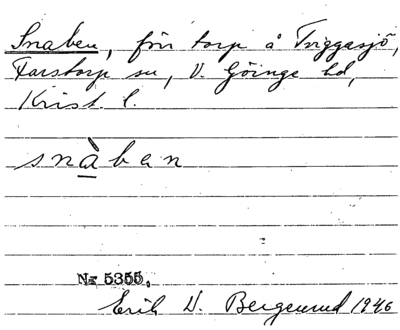 Snaben, förr torp å Triggasjö,
Farstorp sn, V. Göinge hd,
Krist. l.
snàben
Nr 5355.
Erik W. Bergenrud 1946